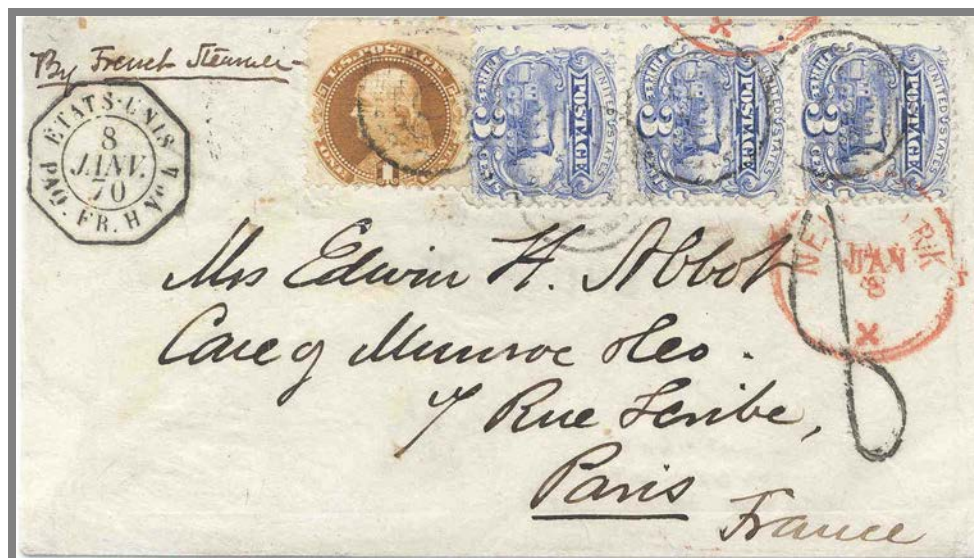 By French Steamer
ETATS-UNIS
8
JANV.
70
PAQ. FR. H No 4
U.S. POSTAGE
ONE CENT
1
UNITED STATES
POSTAGE
3
UNITED STATES
POSTAGE
3
UNITED STATES
POSTAGE
3
NEW YORK
JAN
8
Mrs Edwin H. Abbot
Care of Munroe &Co.
7 Rue Scribe,
Paris
France